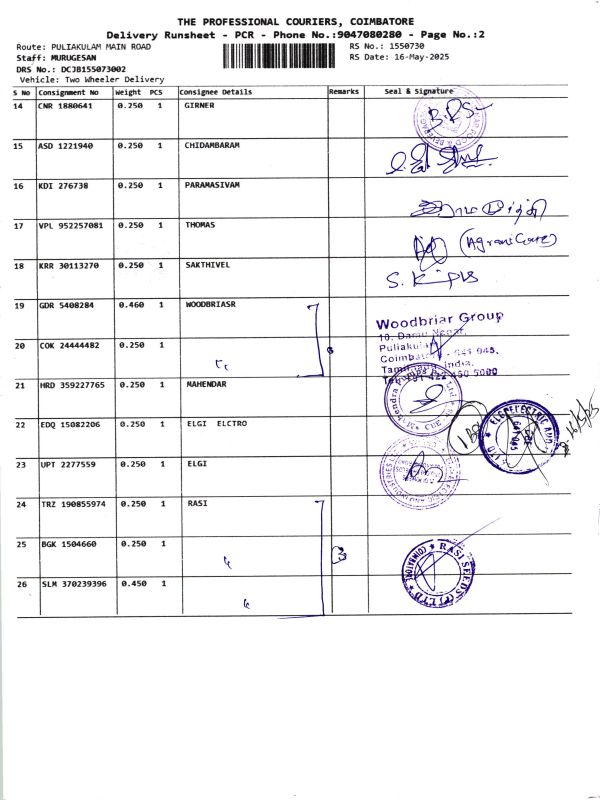 THE PROFESSIONAL COURIERS, COIMBATORE
Delivery Runsheet - PCR - Phone No.:9047080280 - Page No.:2
Route: PULIAKULAM MAIN ROAD
RS No.: 1550730
Staff: MURUGESAN
RS Date: 16-May-2025
DRS No.: DCJB155073002
Vehicle: Two Wheeler Delivery
S No Consignment No Weight PCS Consignee Details Remarks Seal & Signature
14 CNR 1880641 0.250 1 GIRNER
15 ASD 1221940 0.250 1 CHIDAMBARAM
16 KDI 276738 0.250 1 PARAMASIVAM
17 VPL 952257081 0.250 1 THOMAS
18 KRR 30113270 0.250 1 SAKTHIVEL
19 GDR 5408284 0.460 1 WOODBRIASR
Woodbriar Group
20 COK 24444482 0.250 1
21 HRD 359227765 0.250 1 MAHENDAR
22 EDQ 15082206 0.250 1 ELGI ELCTRO
23 UPT 2277559 0.250 1 ELGI
24 TRZ 190855974 0.250 1 RASI
25 BGK 1504660 0.250 1
3
26 SLM 370239396 0.450 1
RASI SEEDS (P) LTD